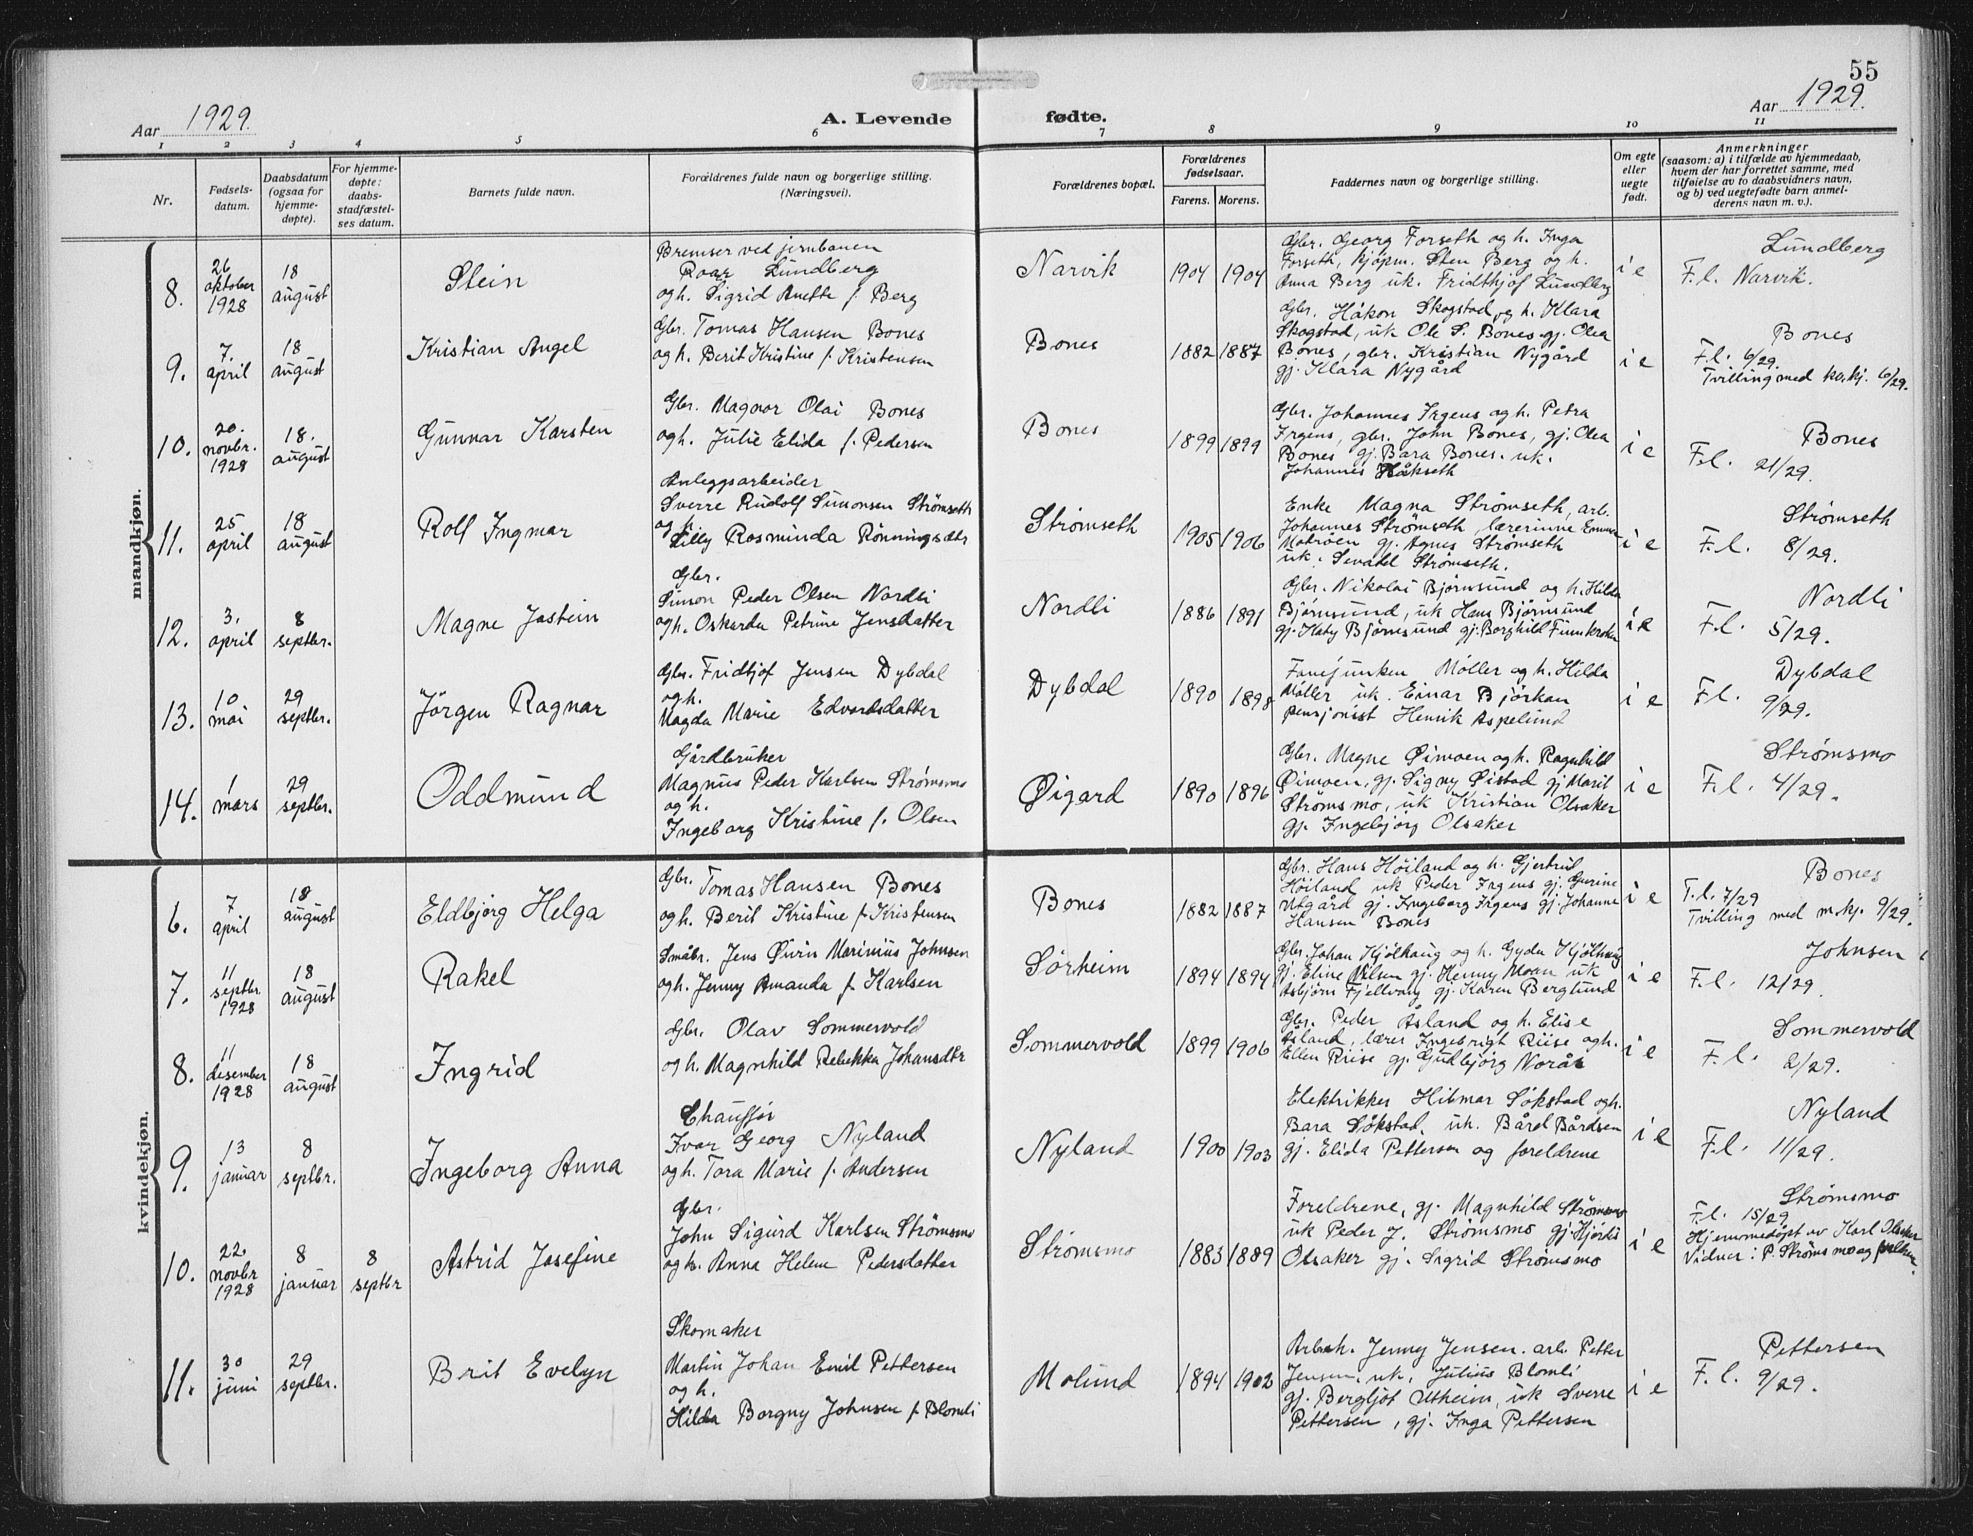 55
Aar 1929. A. Levende fødte. Aar 1929.
1 2 3 4 5 6 7 8 9 10 11
Nr.
Fødsels-
datum.
Daabsdatum
(ogsaa for
hjemme-
døpte).
For hjemme-
døpte:
daabs-
stadfæstel-
ses datum.
Barnets fulde navn.
Forældrenes fulde navn og borgerlige stilling.
(Næringsvei).
Forældrenes bopæl.
Forældrenes
fødselsaar.
Farens. Morens.
Faddernes navn og borgerlige stilling.
Om egte
eller
uegte
født.
Anmerkninger
(saasom: a) i tilfælde av hjemmedaab,
hvem der har forrettet samme, med
tilføielse av to daabsvidners navn,
og b) ved uegtefødte barn anmel-
derens navn m. v.).
mandkjøn.
8.
26
oktober
1928
18
august
Stein
Bremser ved jernbanen
Roar Lundberg
og h. Sigrid Anette f. Berg
Narvik
1904 1904
Gbr. Georg Forseth og h. Inga
Forseth, kjøpm. Sten Berg og h.
Anna Berg uk. Fridthjof Lundberg
i e
Lundberg
F.l. Narvik.
9.
7.
april
18
august
Kristian Angel
Gbr. Tomas Hansen Bones
og h. Berit Kristine f. Kristensen
Bones
1882 1887
Gbr. Håkon Skogstad og h. Klara
Skogstad, uk Ole S. Bones gj. Olea
Bones, gbr. Kristian Nygård
gj. Klara Nygård
i e
Bones
F.l. 6/29.
Tvilling med kv.kj. 6/29.
10.
20.
novbr.
1928
18.
august
Gunnar Karsten
Gbr. Magnor Olai Bones
og h. Julie Elida f. Pedersen
Bones
1899 1899
Gbr. Johannes Irgens og h. Petra
Irgens, gbr. John Bones, gj. Olea
Bones gj. Bara Bones. uk.
Johannes
i e
Bones
F.l. 21/29.
11.
25
april
18
august
Rolf Ingmar
Anleggsarbeider
Sverre Rudolf Simonsen Strømseth
og h.
Lilly Rosminda Rönningsæter
Strømseth
1905 1906
Enke Magna Strømseth, arb.
Johannes Strømseth, lærerinne Emma
Motrøen gj. Agnes Strømseth
uk. Strømseth.
i e
Strømseth
F.l. 8/29.
12.
3.
april
8
septbr.
Magne Jostein
Gbr.
Simon Peder Olsen Nordli
og h. Oskarda Petrine Jensdatter
Nordli
1886 1891
Gbr. Nikolai Bjørnsund og h. Hilda
Bjørnsund, uk Hans Bjørnsund
gj. Katy Bjørnsund gj. Borghild Finnkroken
i e
Nordli
F.l. 5/29.
13.
10
mai
29
septbr.
Jørgen Ragnar
Gbr. Fridtjof Jensen Dybdal
og h.
Magda Marie Edvardsdatter
Dybdal
1890 1898
Fanejunker Møller og h. Hilda
Møller uk. Einar Bjørkan
pensjonist Henrik Aspelund
i e
Dybdal
F.l. 9/29.
14.
1
mars
29
septbr.
Oddmund
Gårdbruker
Magnus Peder Karlsen Strømsmo
og h.
Ingeborg Kristine f. Olsen
Øigard
1890 1896
Gbr. Magne Øimoen og h. Ragnhild
Øimoen, gj. Signy Øistad gj Marit
Strømsmo, uk Kristian Olsaker
gj. Ingebjørg Olsaker
i e
Strømsmo
F.l. 4/29.
kvindekjøn.
6.
7
april
18
august
Eldbjørg Helga
Gbr. Tomas Hansen Bones
og h. Berit Kristine f. Kristensen
Bones
1882 1887
Gbr. Hans Høiland og h. Gjertrud
Høiland uk Peder Irgens gj. Gurine
Utgård gj. Ingeborg Irgens gj. Johanne
Hansen Bones
i e
Bones
F.l. 7/29
Tvilling med m.kj. 9/29.
7.
11
septbr
1928
18
august
Rakel
Småbr. Jens Øivin Marinius Johnsen
og h. Jenny Amanda f. Karlsen
Sørheim
1894 1894
Gbr. Johan Kjølhaug og h. Gyda Kjølhaug
gj. Eline Nilsen gj. Henny Moan uk
Asbjørn Fjellvang gj. Karen Berglund
i e
Johnsen
F.l. 12/29.
8.
11
desember
1928
18
august
Ingrid
Gbr. Olav Sommervold
og h. Magnhild Rebekka Johansdtr
Sommervold
1899 1906
Gbr. Peder Åsland og h. Elise
Åsland, lærer Ingebrigt Riise og h.
Ellen Riise gj. Gudbjørg Norås
i e
Sommervold
F.l. 2/29.
9.
13
januar
8
septbr.
Ingeborg Anna
Chauffør
Ivar Georg Nyland
og h. Tora Marie f. Andersen
Nyland
1900 1903
Elektrikker Hilmar Søkstad og h.
Bara Søkstad, uk. Bårdsen
gj. Elida Pettersen og foreldrene
i e
Nyland
F.l. 11/29.
10.
22.
novbr
1928
8
januar
8
septbr
Astrid Josefine
Gbr.
John Sigurd Karlsen Strømsmo
og h. Anna Helene Pedersdatter
Strømsmo
1883 1889
Foreldrene, gj. Magnhild Strømsmo
uk Peder J. Strømsmo gj. Hjørdis
Olsaker gj. Sigrid Strømsmo
i e
Strømsmo
F.l. 15/29
Hjemmedøpt av Karl Olsaker
Vidner: P. Strømsmo og
11.
30
juni
29
septbr.
Brit Evelyn
Skomaker
Martin Johan Emil Pettersen
og h.
Hilda Borgny Johnsen f. Blomli
Molund
1894 1902
Arb.h. Jenny Jensen. arb. Petter
Jensen, uk. Julius Blomli
gj. Bergljot Utheim, uk Sverre
Pettersen, gj. Inga Pettersen
i e
Pettersen
F.l. 9/29.